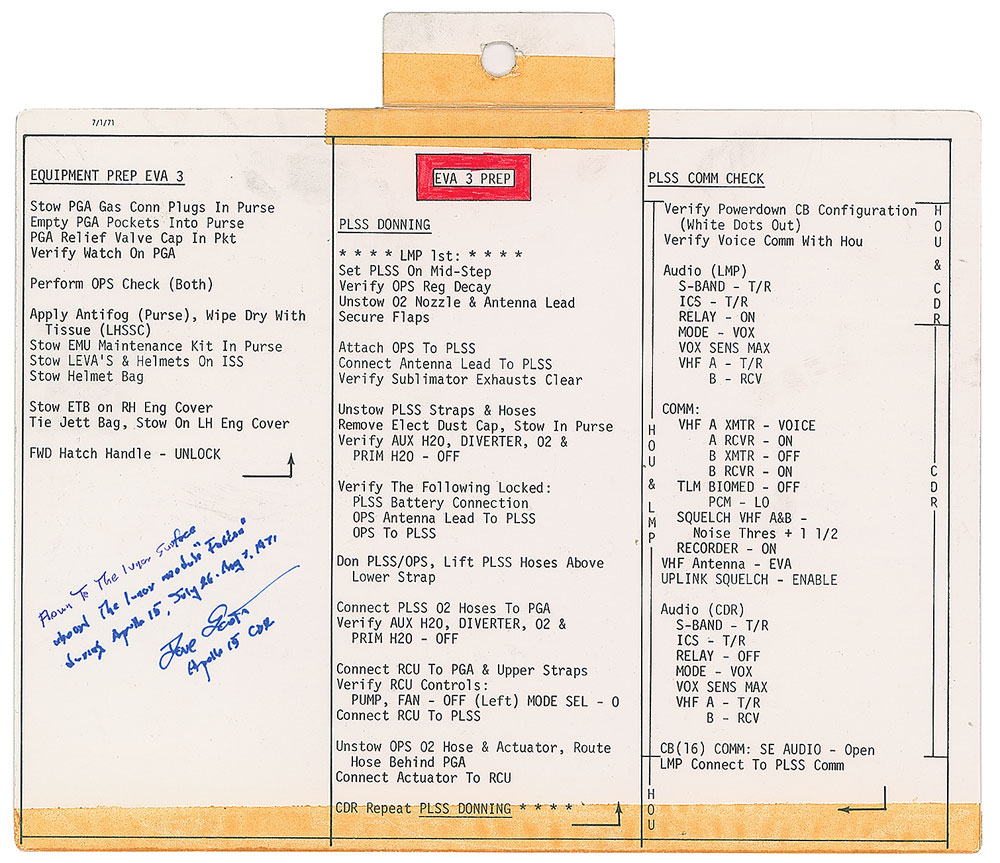 7/1/71
EQUIPMENT PREP EVA 3
Stow PGA Gas Conn Plugs In Purse
Empty PGA Pockets Into Purse
PGA Relief Valve Cap In Pkt
Verify Watch On PGA
Perform OPS Check (Both)
Apply Antifog (Purse), Wipe Dry With
Tissue (LHSSC)
Stow EMU Maintenance Kit In Purse
Stow LEVA'S & Helmets On ISS
Stow Helmet Bag
Stow ETB on RH Eng Cover
Tie Jett Bag, Stow On LH Eng Cover
FWD Hatch Handle - UNLOCK
Flown To The lunar surface
aboard The lunar module "Falcon"
during Apollo 15, July 26-Aug 7, 1971
Dave Scott
Apollo 15 CDR
EVA 3 PREP
PLSS DONNING
* * * * LMP 1st: * * * *
Set PLSS On Mid-Step
Verify OPS Reg Decay
Unstow O2 Nozzle & Antenna Lead
Secure Flaps
Attach OPS To PLSS
Connect Antenna Lead To PLSS
Verify Sublimator Exhausts Clear
Unstow PLSS Straps & Hoses
Remove Elect Dust Cap, Stow In Purse
Verify AUX H2O, DIVERTER, O2 &
PRIM H2O - OFF
Verify The Following Locked:
PLSS Battery Connection
OPS Antenna Lead To PLSS
OPS To PLSS
Don PLSS/OPS, Lift PLSS Hoses Above
Lower Strap
Connect PLSS O2 Hoses To PGA
Verify AUX H2O, DIVERTER, O2 &
PRIM H2O - OFF
Connect RCU To PGA & Upper Straps
Verify RCU Controls:
PUMP, FAN - OFF (Left) MODE SEL - O
Connect RCU To PLSS
Unstow OPS O2 Hose & Actuator, Route
Hose Behind PGA
Connect Actuator To RCU
CDR Repeat PLSS DONNING * * * *
PLSS COMM CHECK
Verify Powerdown CB Configuration
(White Dots Out)
Verify Voice Comm With Hou
Audio (LMP)
S-BAND - T/R
ICS - T/R
RELAY - ON
MODE - VOX
VOX SENS MAX
VHF A - T/R
B - RCV
COMM:
VHF A XMTR - VOICE
A RCVR - ON
B XMTR - OFF
B RCVR - ON
TLM BIOMED - OFF
PCM - LO
SQUELCH VHF A&B -
Noise Thres + 1 1/2
RECORDER - ON
VHF Antenna - EVA
UPLINK SQUELCH - ENABLE
Audio (CDR)
S-BAND - T/R
ICS - T/R
RELAY - OFF
MODE - VOX
VOX SENS MAX
VHF A - T/R
B - RCV
CB(16) COMM: SE AUDIO - Open
LMP Connect To PLSS Comm
HOU & LMP
HOU
HOU & CDR
CDR